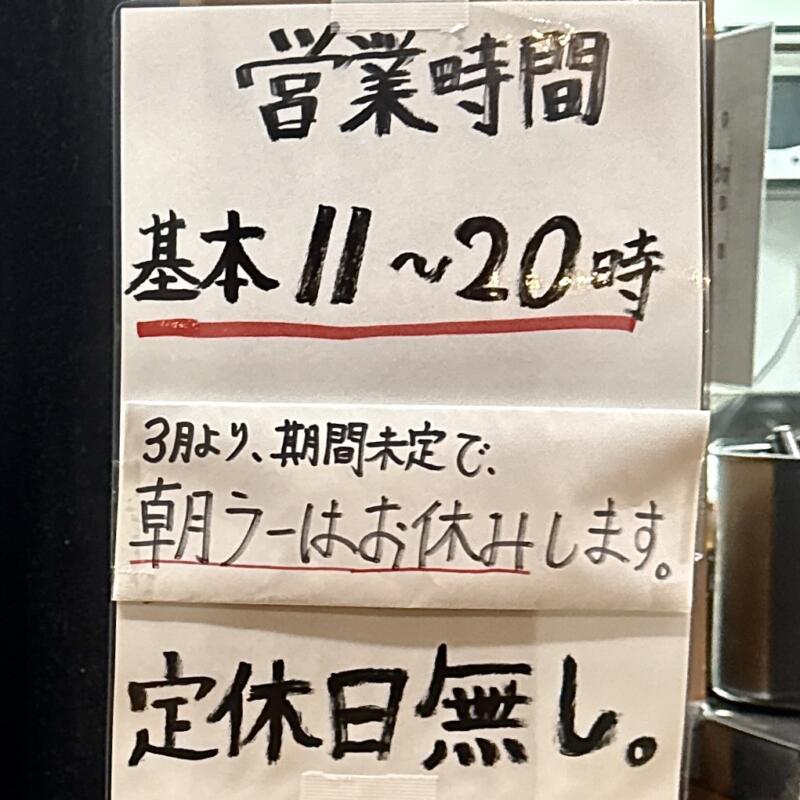 営業時間
基本 11～20時
3月より、期間未定で、
朝ラーはお休みします。
定休日無し。